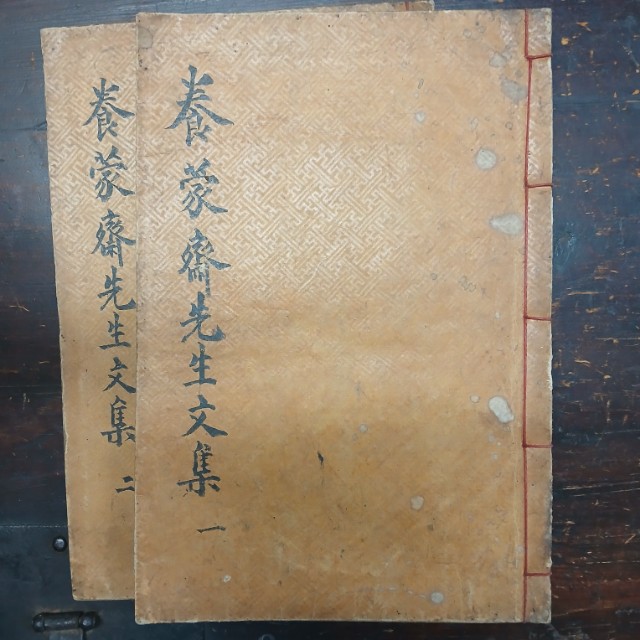 養蒙齋先生文集 一
養蒙齋先生文集 二